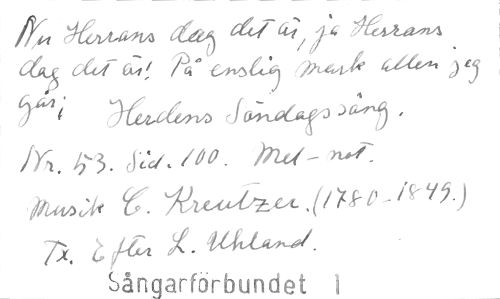 Nu Herrans dag det är, ja Herrans
dag det är! På enslig mark allen jag
går;   Herdens Söndagssång.
Nr. 53. Sid. 100. Mel-not.
Musik C. Kreutzer. (1780-1849.)
Tx. Efter L. Uhland.
Sångarförbundet 1